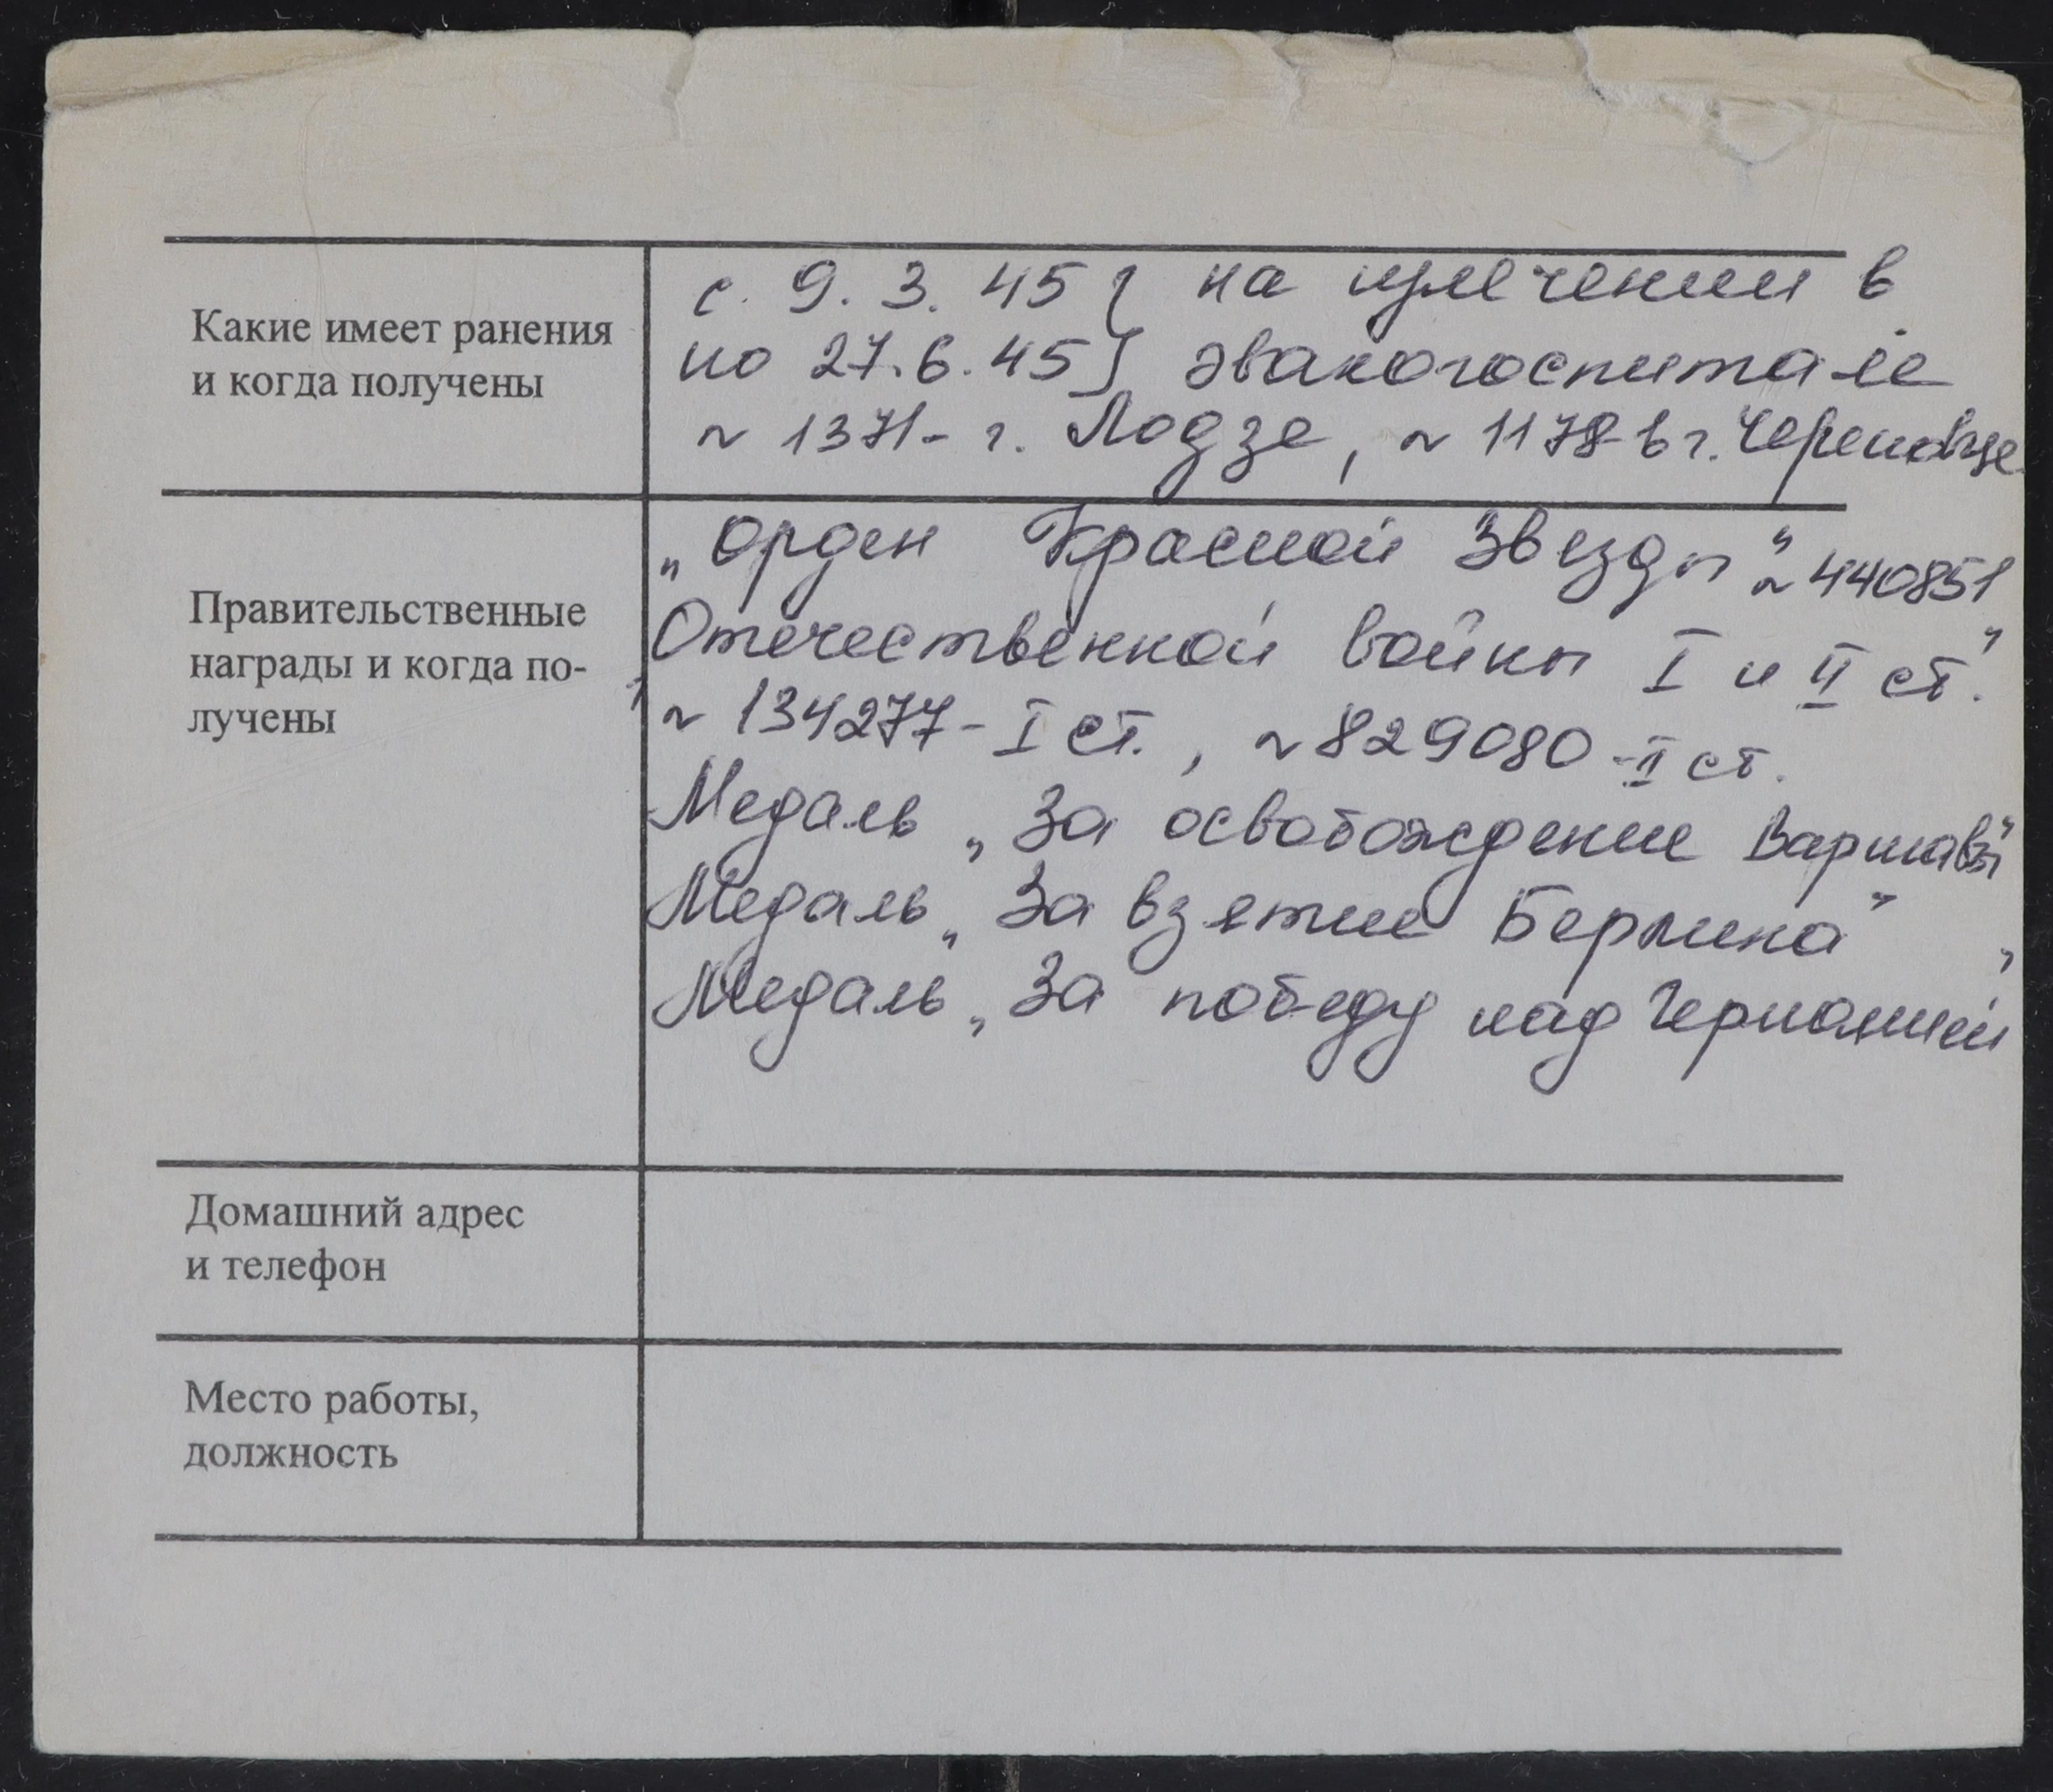 Какие имеет ранения
и когда получены
с. 9. 3. 45 } на излечении в
по 27. 6. 45 } эвакогоспитале
~ 1371 - г. Лодзе, ~ 1178 в г. Череповце
Правительственные
награды и когда по-
лучены
„Орден Красной Звезды" ~ 440851
Отечественной войны I и II ст."
~ 134277 - I ст., ~ 829080 - II ст.
Медаль „За освобождение Варшавы"
Медаль „За взятие Берлина"
Медаль „За победу над Германией"
Домашний адрес
и телефон
Место работы,
должность